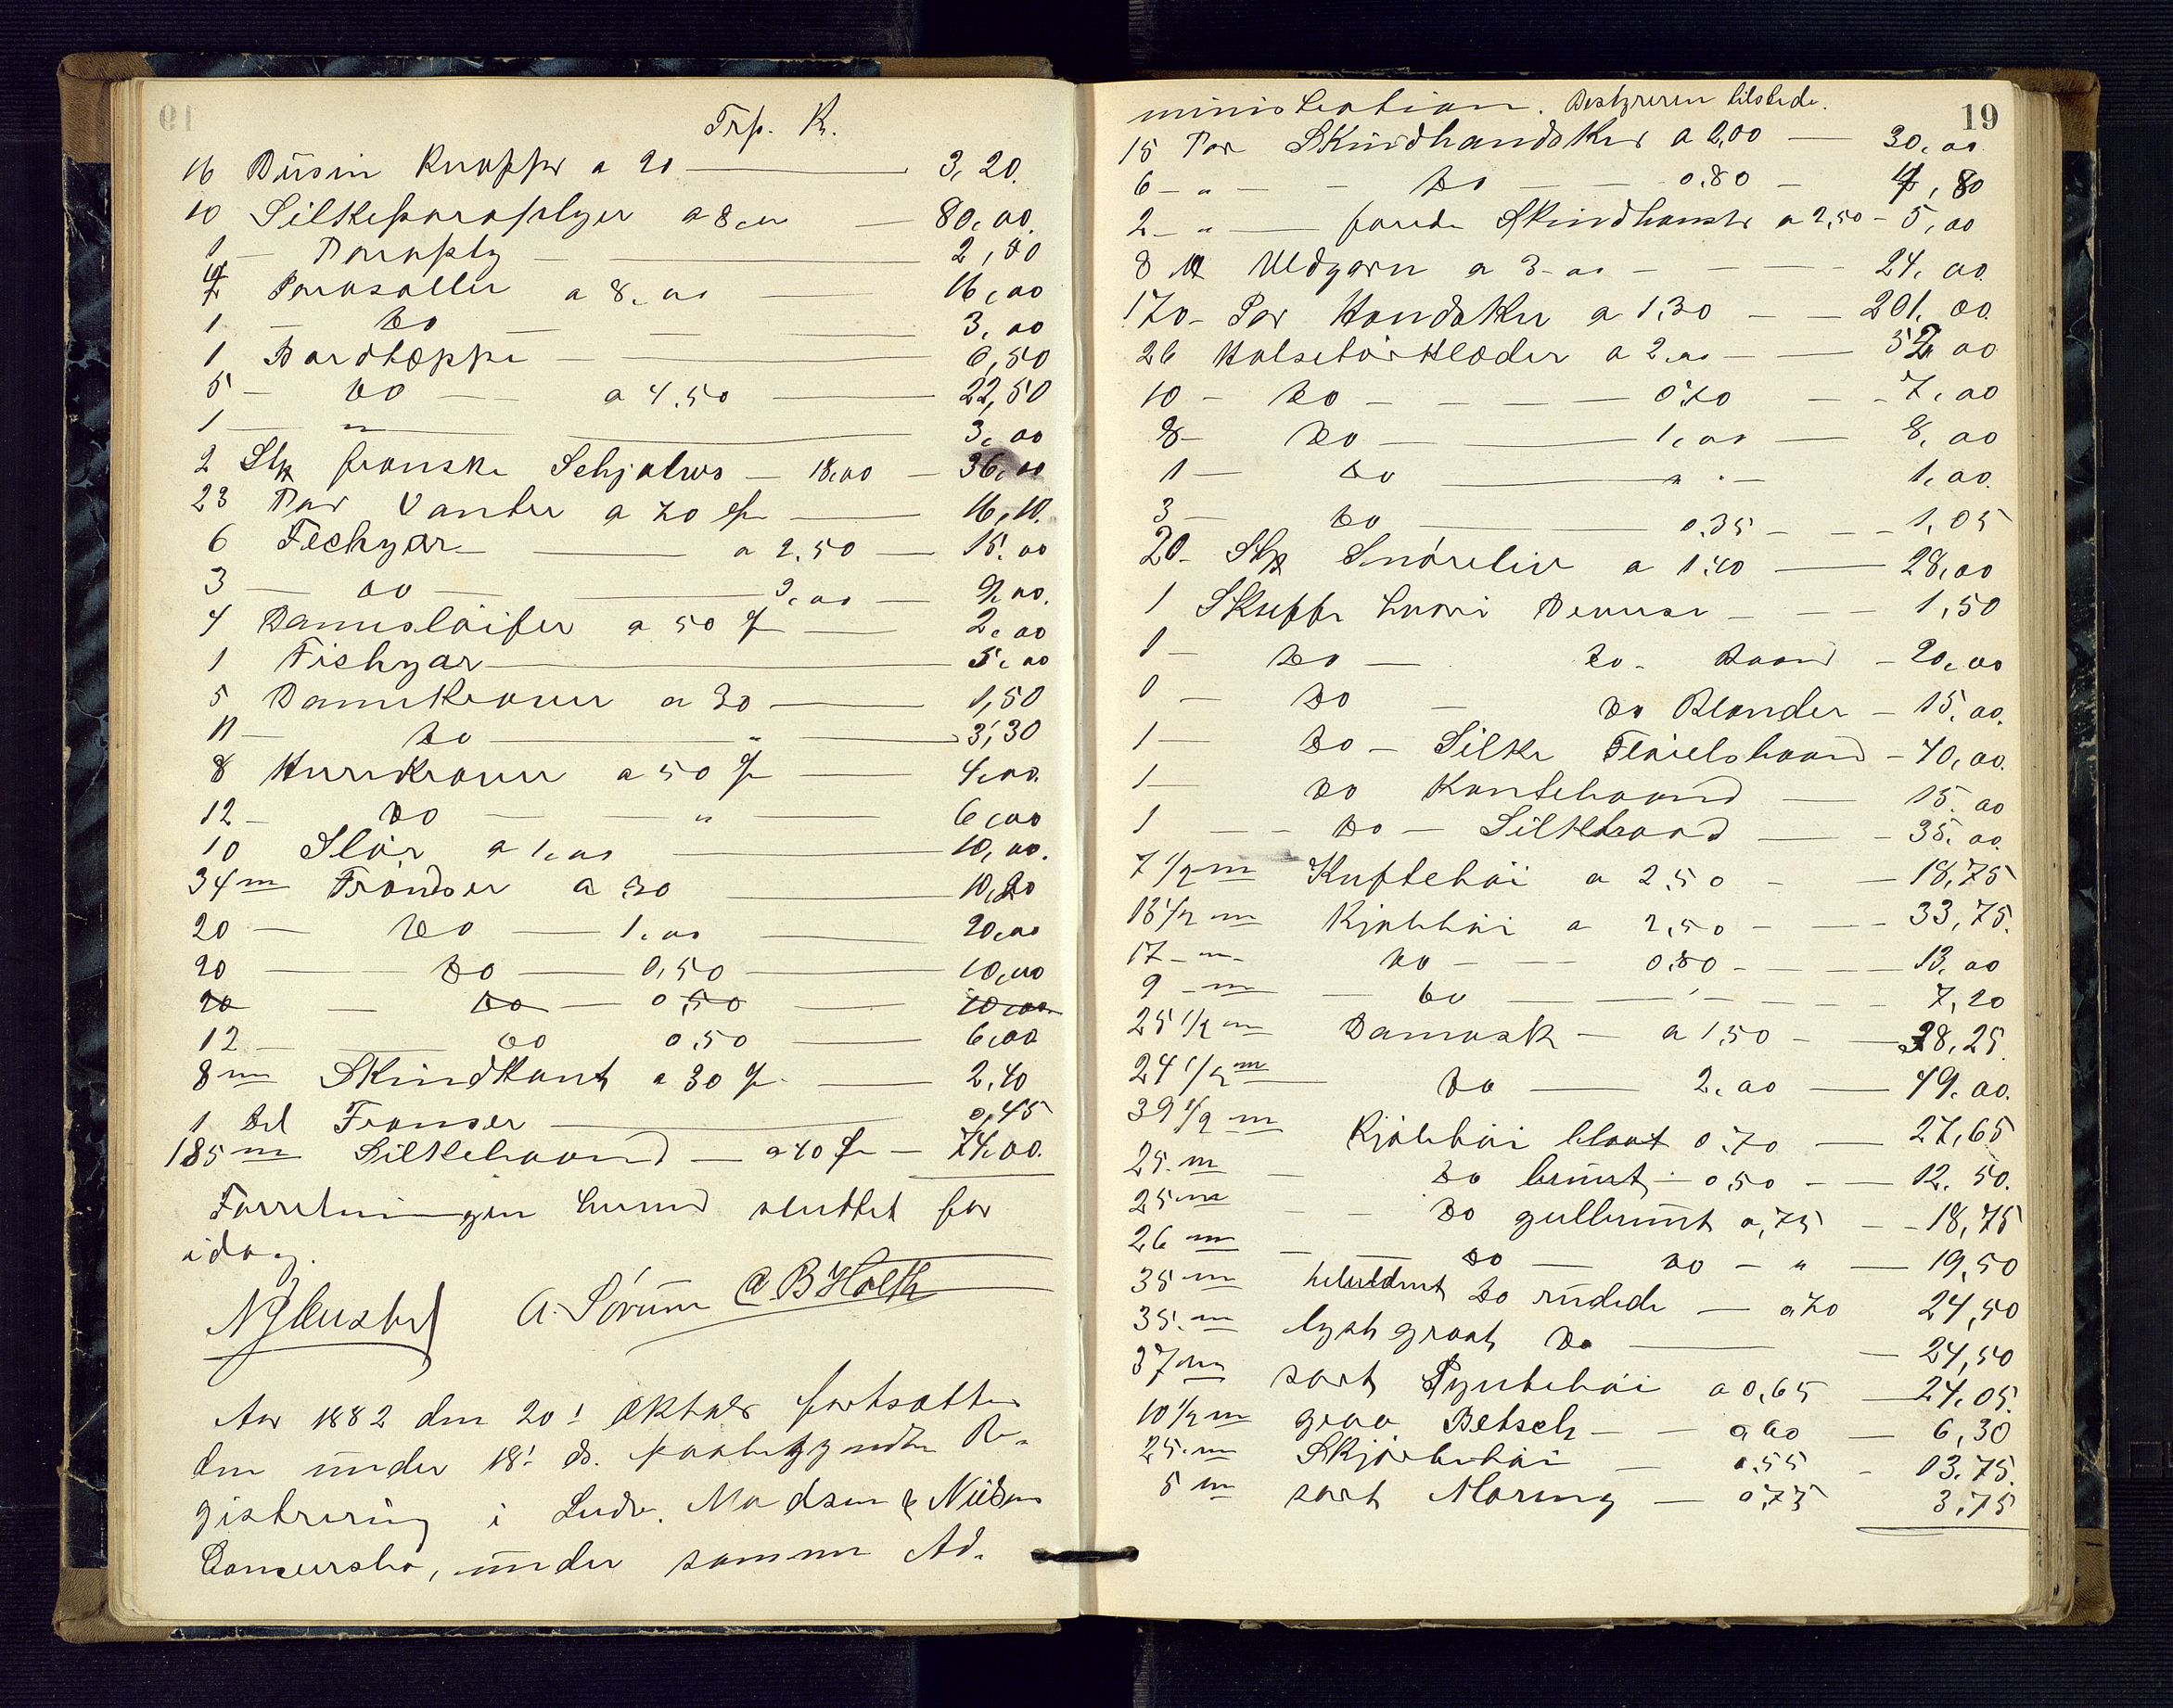 Trp. K.
16 Düsin Knapper a 20 — 3,20.
10 Silkeparaplyer a 8,00 — 80,00.
1 — Paraply — 2,80
2 Parasoller a 8,00 — 16,00
1 — do — 3,00
1 Bordtæppe — 6,50
5 — do — a 4,50 — 22,50
1 — " — 3,00
2 Stk franske Schjalws — 18,00 — 36,00
23 Par Vanter a 70 Ør — 16,10.
6 Fechyar — a 2,50 — 15,00
3 — do — 3,00 — 9,00.
4 Dameslöifer a 50 Ør — 2,00
1 Fichyar — 5,00
5 Damekraver a 30 — 1,50
11 — do — " — 3,30
8 Herrekraver a 50 Ør — 4,00.
12 — do — " — 6,00
10 Slör a 1,00 — 10,00.
34 m Frandser a 30 — 10,20
20 — do — 1,00 — 20,00
20 — do — 0,50 — 10,00
20 — do — 0,50 — 10,00
12 — do 0,50 — 6,00
8 m Skindkant a 30 Ør — 2,40
1 Del Franser — 0,45
185 m Silkebaand — a 40 Ør — 74,00.
Forretningen herved sluttet for
idag.
A. Sörum B Holth
Aar 1882 den 20! Oktober fortsattes
den under 18! ds. paabegyndte Re-
gistrering i Ludv. Madsen & Nielsens
Concursbo, under samme Ad-
19
ministration. Bestyreren tilstede.
15 Par Skindhandsker a 2,00 — 30,00
6 — " — do — 0,80 — 4,80
2 — " — forede Skindhansker a 2,50 — 5,00
8 ℔ Uldgarn a 3,00 — 24,00
170 — Par Handsker a 1,30 — 201,00.
26 Halsetörklæder a 2,00 — 52,00
10 — do — 0,70 — 7,00
8 — do — 1,00 — 8,00
1 — do — " — 1,00.
3 — do — 0,35 — 1,05
20 — Stk Snöreliv a 1,40 — 28,00
1 Skuffe hvori Besatser — 1,50
1 — do — do — Baand — 20,00
1 — do — do Blonder — 15,00.
1 — do — Silke Flöielsbaand — 40,00.
1 — do Kantebaand — 15,00
1 — do — Silkebaand — 35,00.
7 1/2 m Kuftetöi a 2,50 — 18,75
13 1/2 m Kjoletöi a 2,50 — 33,75.
17 — m — do — 0,80 — 13,00
9 — m — do — " — 7,20
25 1/2 m Damask — a 1,50 — 38,25.
24 1/2 m do — 2,00 — 49,00.
39 1/2 m Kjoletöi blaat 0,70 — 27,65
25. m — do brunt — 0,50 — 12,50.
25 m — do gulbrunt 0,75 — 18,75
26 m — do — do — " — 19,50
35 m do rudede — a 70 24,50
35. m lysegraat do — 24,50
37 m sort Pyntetöi a 0,65 — 24,05.
10 1/2 m graa Betsch — a 60 — 6,30
25. m Skjörtetöi — 0,55 — 13,75.
5 m sort Moring — 0,75 3,75